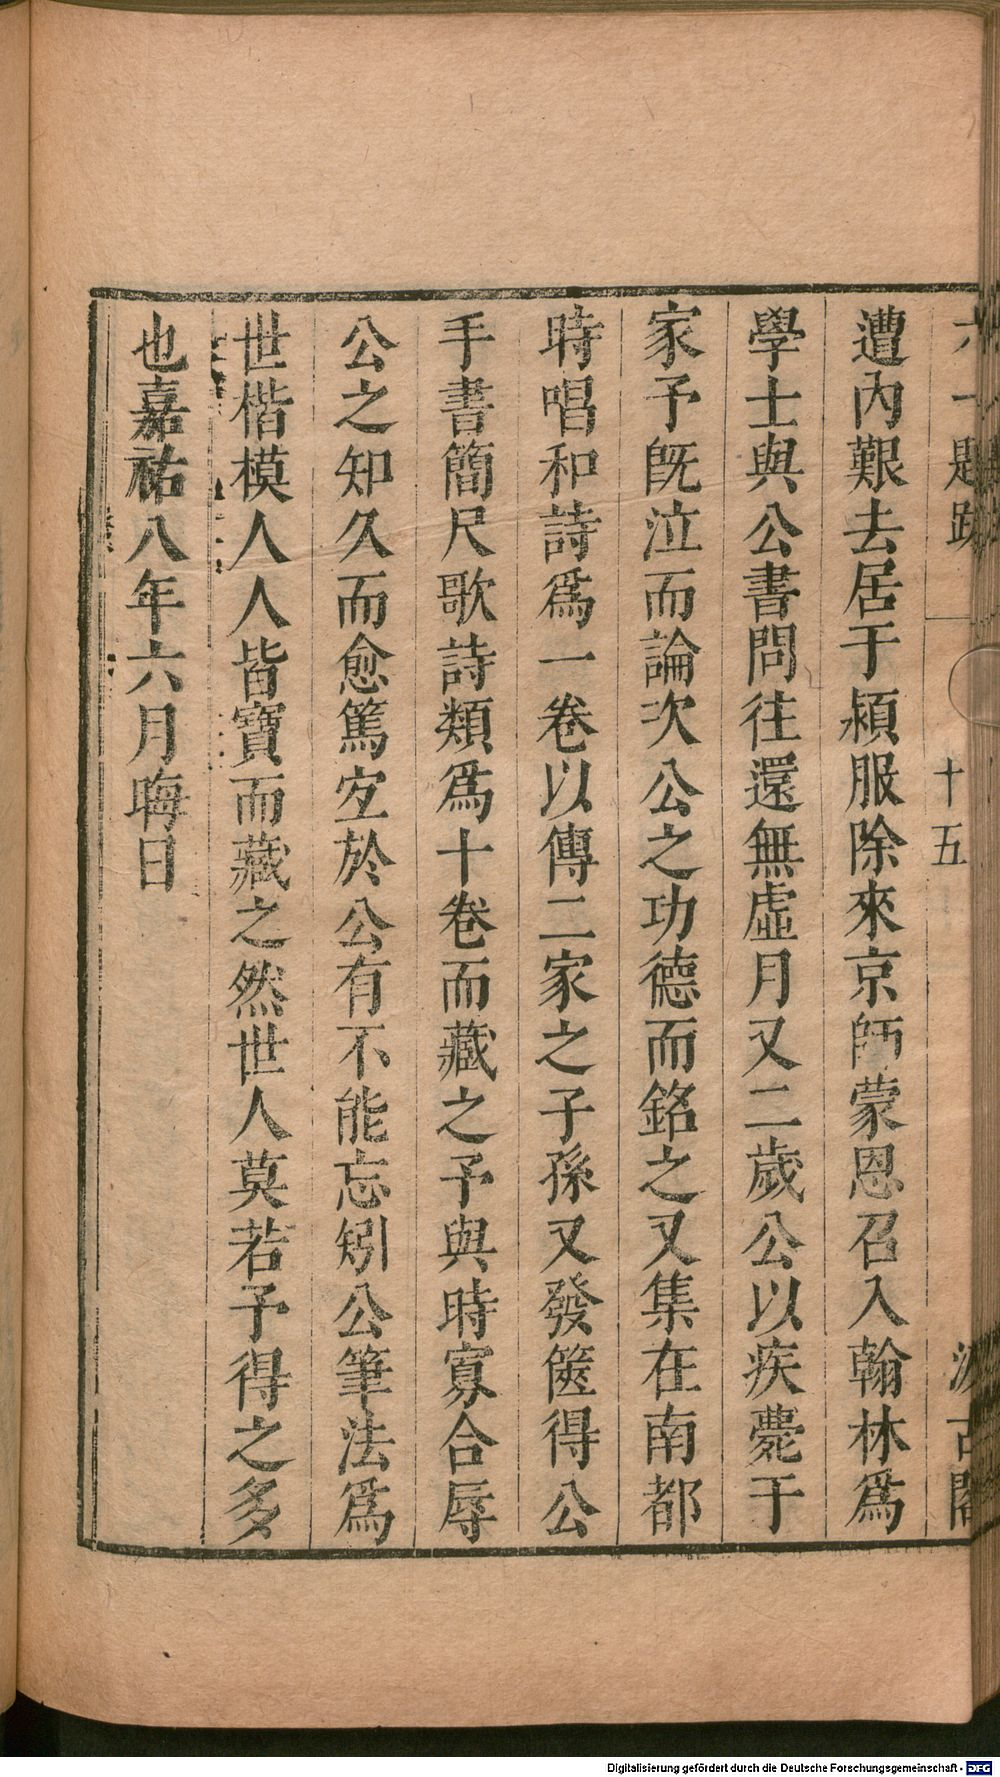 六一題跋 十五 汲古閣
遭內艱去居于潁服除來京師蒙恩召入翰林爲
學士與公書問往還無虛月又二歲公以疾薨于
家予旣泣而論次公之功德而銘之又集在南都
時唱和詩爲一卷以傳二家之子孫又發篋得公
手書簡尺歌詩類爲十卷而藏之予與時寡合辱
公之知久而愈篤宐於公有不能忘矧公筆法爲
世楷模人人皆寶而藏之然世人莫若予得之多
也嘉祐八年六月晦日
Digitalisierung gefördert durch die Deutsche Forschungsgemeinschaft - DFG